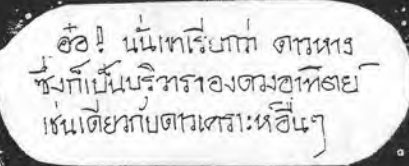 อ๋อ! นั่นเขาเรียกว่า ดาวหาง
ซึ่งก็เป็นบริวารของดวงอาทิตย์
เช่นเดียวกับดาวเคราะห์อื่นๆ